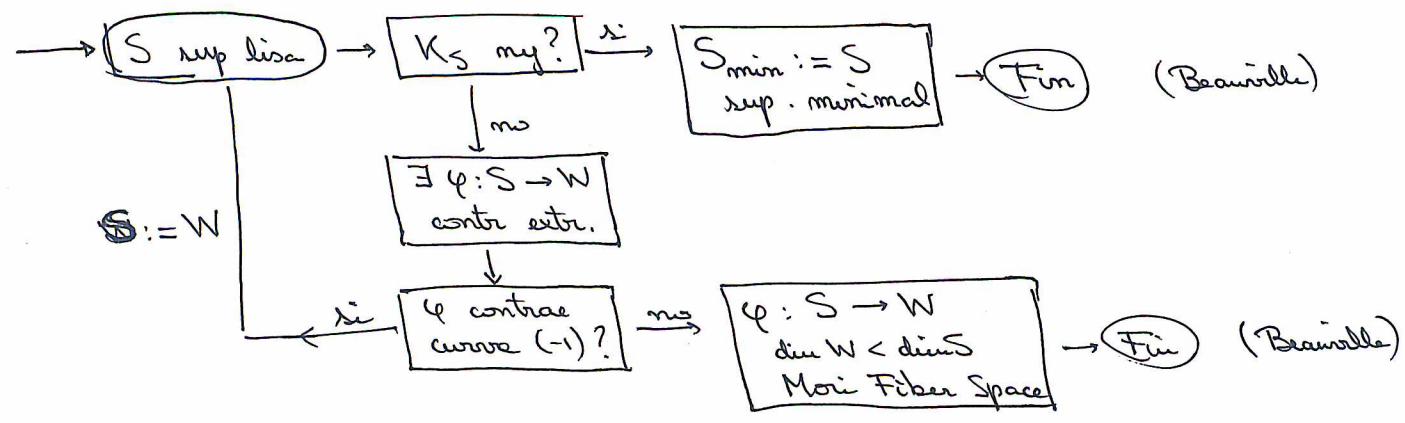 S sup lisa
K_S neg?
si
S_min := S
sup. minimal
Fin
(Beauville)
no
∃ φ: S → W
contr extr.
S := W
φ contrae
curva (-1)?
si
no
φ : S → W
dim W < dim S
Mori Fiber Space
Fin
(Beauville)